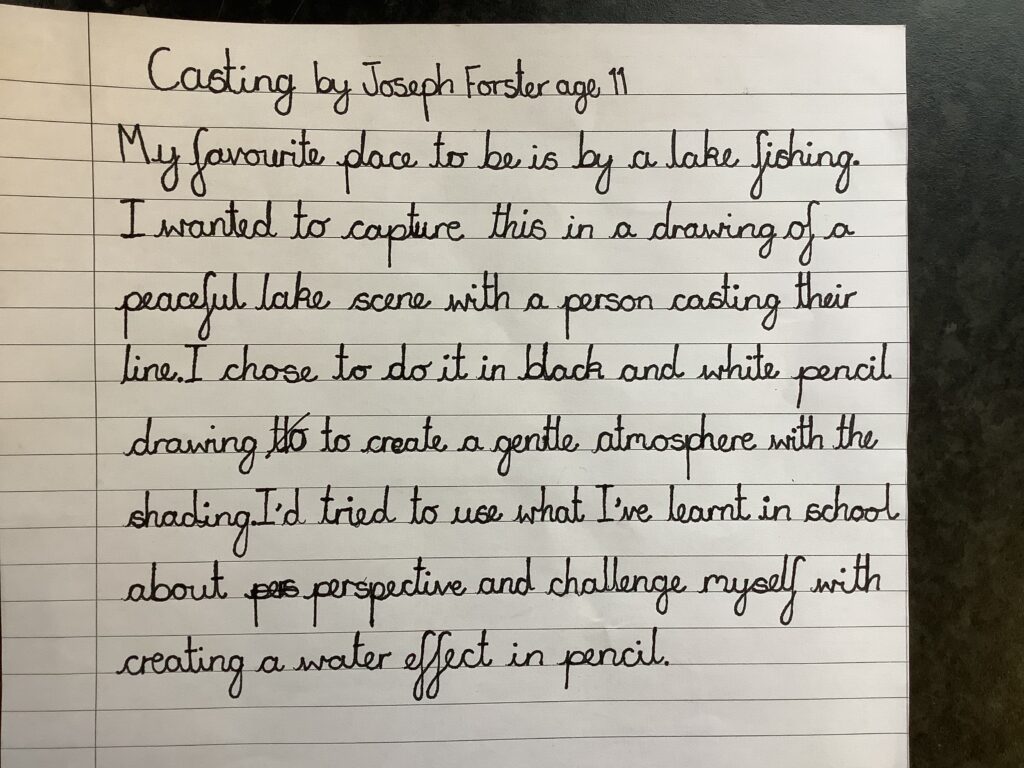 Casting by Joseph Forster age 11
My favourite place to be is by a lake fishing.
I wanted to capture this in a drawing of a
peaceful lake scene with a person casting their
line. I chose to do it in black and white pencil
drawing to to create a gentle atmosphere with the
shading. I'd tried to use what I've learnt in school
about pers perspective and challenge myself with
creating a water effect in pencil.